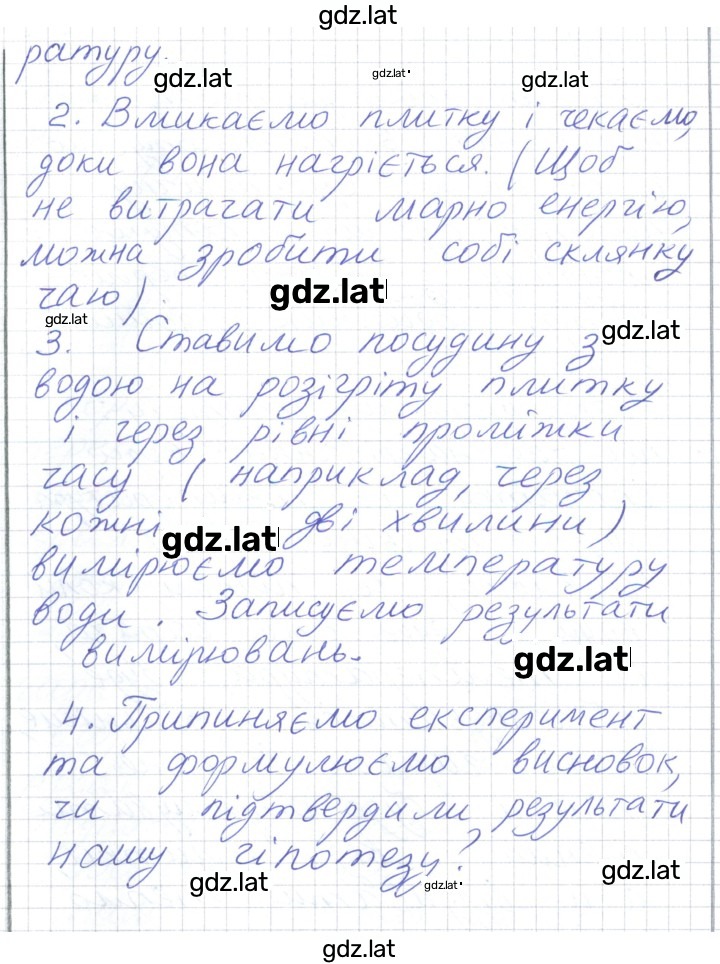 gdz.lat
ратуру.
gdz.lat gdz.lat gdz.lat
2. Вмикаємо плитку і чекаємо,
доки вона нагріється. (Щоб
не витрачати марно енергію,
можна зробити собі склянку
чаю)
gdz.lat
gdz.lat
3. Ставимо посудину з
gdz.lat
водою на розігріту плитку
і через рівні проміжки
часу (наприклад, через
кожні дві хвилини)
gdz.lat
вимірюємо температуру
води. Записуємо результати
вимірювань.
gdz.lat
4. Припиняємо експеримент
та формулюємо висновок,
чи підтвердили результати
нашу гіпотезу?
gdz.lat gdz.lat gdz.lat
gdz.lat